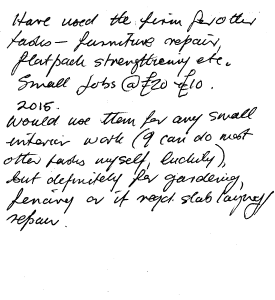 Have used the firm for other
tasks – furniture repair,
flatpack strengthening etc.
Small Jobs @ £20 - £10.
2015.
Would use them for any small
interior work (I can do most
other tasks myself, luckily),
but definitely for gardening,
fencing or if reqd slab laying/
repair.